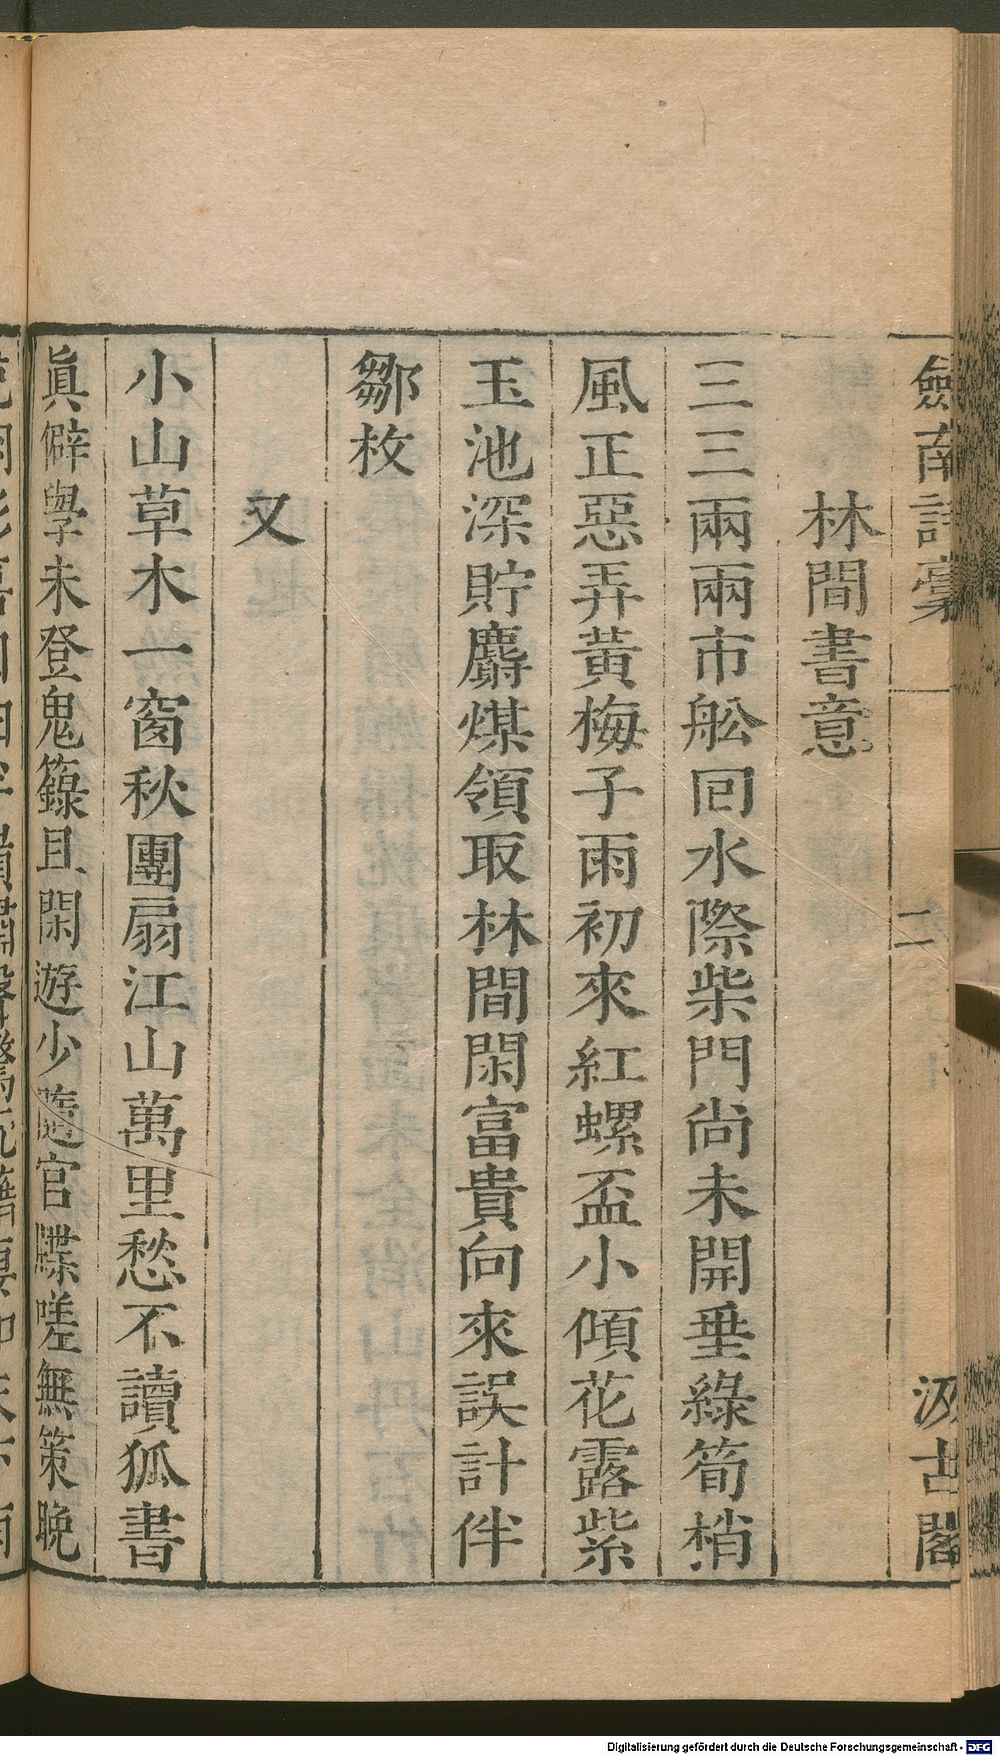 劍南詩稾
二
汲古閣
林間書意
三三兩兩市舩回水際柴門尚未開垂綠筍梢
風正惡弄黃梅子雨初來紅螺盃小傾花露紫
玉池深貯麝煤領取林間閑富貴向來誤計伴
鄒枚
又
小山草木一窗秋團扇江山萬里愁不讀狐書
眞僻學未登鬼籙且閑遊少隨官牒嗟無策晚
Digitalisierung gefördert durch die Deutsche Forschungsgemeinschaft - DFG